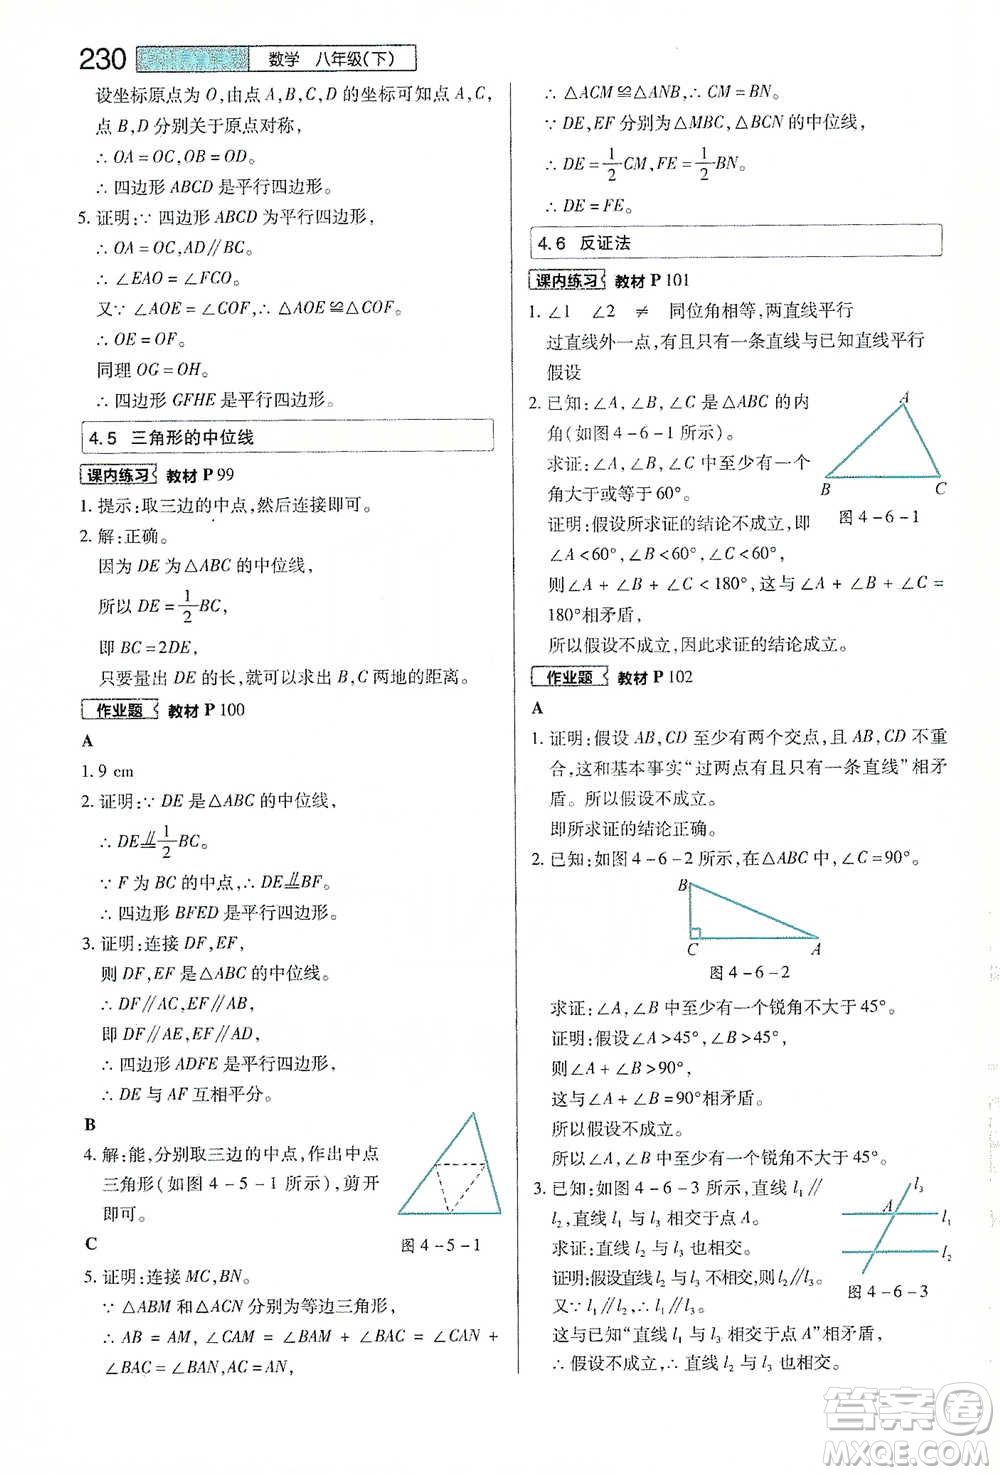 230
数学 八年级(下)
设坐标原点为 O,由点 A,B,C,D 的坐标可知点 A,C,
点 B,D 分别关于原点对称,
∴ OA=OC,OB=OD。
∴ 四边形 ABCD 是平行四边形。
5. 证明:∵ 四边形 ABCD 为平行四边形,
∴ OA=OC,AD∥BC。
∴ ∠EAO=∠FCO。
又∵ ∠AOE=∠COF,∴ △AOE≌△COF。
∴ OE=OF。
同理 OG=OH。
∴ 四边形 GFHE 是平行四边形。
4.5 三角形的中位线
课内练习 教材 P 99
1. 提示:取三边的中点,然后连接即可。
2. 解:正确。
因为 DE 为△ABC 的中位线,
所以 DE=1/2BC,
即 BC=2DE,
只要量出 DE 的长,就可以求出 B,C 两地的距离。
作业题 教材 P 100
A
1. 9 cm
2. 证明:∵ DE 是△ABC 的中位线,
∴ DE⫫1/2BC。
∵ F 为 BC 的中点,∴ DE⫫BF。
∴ 四边形 BFED 是平行四边形。
3. 证明:连接 DF,EF,
则 DF,EF 是△ABC 的中位线。
∴ DF∥AC,EF∥AB,
即 DF∥AE,EF∥AD,
∴ 四边形 ADFE 是平行四边形。
∴ DE 与 AF 互相平分。
B
4. 解:能,分别取三边的中点,作出中点
三角形(如图 4-5-1 所示),剪开
即可。
图 4-5-1
C
5. 证明:连接 MC,BN。
∵ △ABM 和△ACN 分别为等边三角形,
∴ AB = AM, ∠CAM = ∠BAM + ∠BAC = ∠CAN +
∠BAC=∠BAN,AC=AN,
∴ △ACM≌△ANB,∴ CM=BN。
∵ DE,EF 分别为△MBC,△BCN 的中位线,
∴ DE=1/2CM,FE=1/2BN。
∴ DE=FE。
4.6 反证法
课内练习 教材 P 101
1. ∠1 ∠2 ≠ 同位角相等,两直线平行
过直线外一点,有且只有一条直线与已知直线平行
假设
2. 已知:∠A,∠B,∠C 是△ABC 的内
角(如图 4-6-1 所示)。
求证:∠A,∠B,∠C 中至少有一个
角大于或等于 60°。
证明:假设所求证的结论不成立,即
∠A<60°,∠B<60°,∠C<60°,
则∠A+∠B+∠C<180°,这与∠A+∠B+∠C=
180°相矛盾,
所以假设不成立,因此求证的结论成立。
A
B
C
图 4-6-1
作业题 教材 P 102
A
1. 证明:假设 AB,CD 至少有两个交点,且 AB,CD 不重
合,这和基本事实“过两点有且只有一条直线”相矛
盾。所以假设不成立。
即所求证的结论正确。
2. 已知:如图 4-6-2 所示,在△ABC 中,∠C=90°。
B
C
A
图 4-6-2
求证:∠A,∠B 中至少有一个锐角不大于 45°。
证明:假设∠A>45°,∠B>45°,
则∠A+∠B>90°,
这与∠A+∠B=90°相矛盾。
所以假设不成立。
所以∠A,∠B 中至少有一个锐角不大于 45°。
3. 已知:如图 4-6-3 所示,直线 l₁∥
l₂,直线 l₁ 与 l₃ 相交于点 A。
求证:直线 l₂ 与 l₃ 也相交。
证明:假设直线 l₂ 与 l₃ 不相交,则 l₂∥l₃。
又∵ l₁∥l₂,∴ l₁∥l₃。
这与已知“直线 l₁ 与 l₃ 相交于点 A”相矛盾,
∴ 假设不成立,∴ 直线 l₂ 与 l₃ 也相交。
l₃
A
l₁
l₂
图 4-6-3
答案圈
MXQE.COM